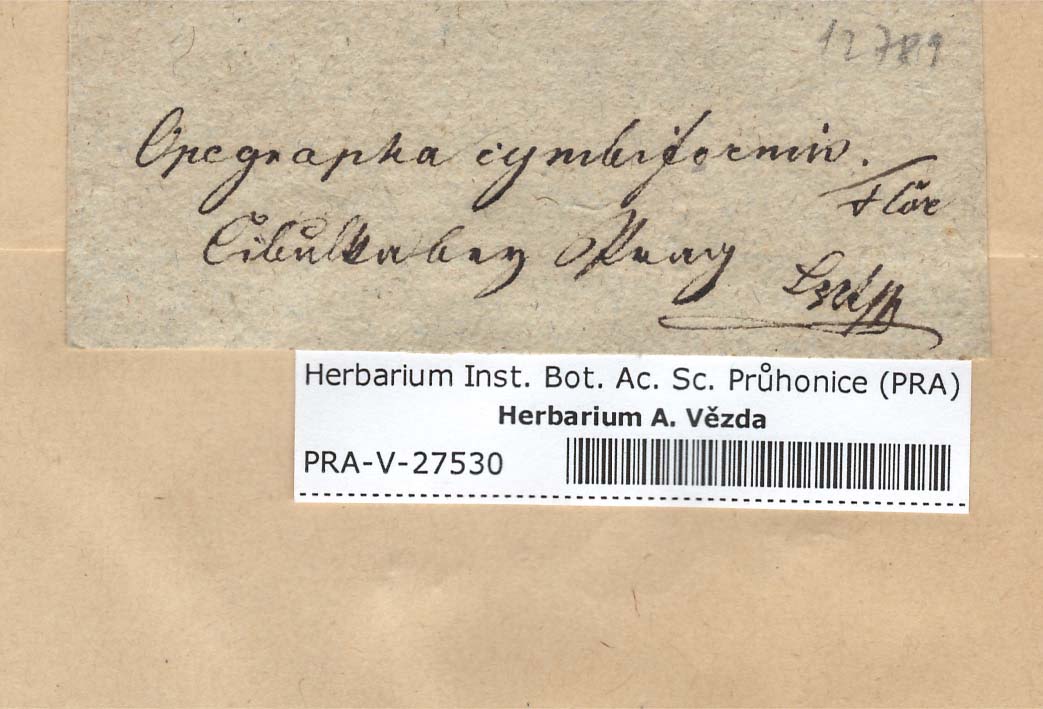 12789
Opegrapha cymbiformis.
Flör
Cibulka bey Prag
Herbarium Inst. Bot. Ac. Sc. Průhonice (PRA)
Herbarium A. Vězda
PRA-V-27530